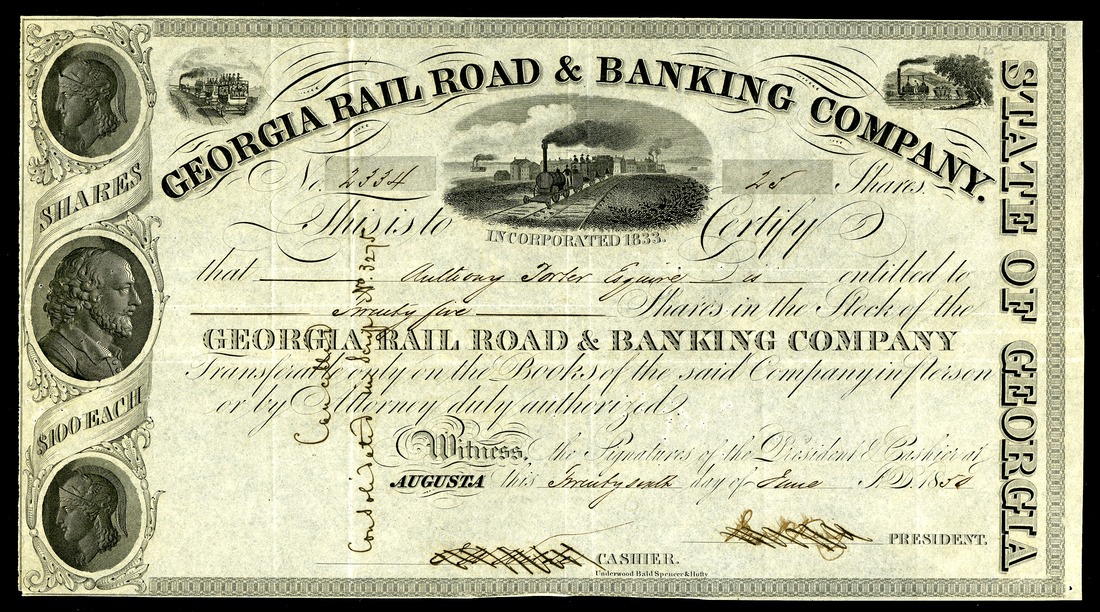 GEORGIA RAIL ROAD & BANKING COMPANY.
No. 2334
25 Shares.
INCORPORATED 1833.
This is to Certify
that Anthony Porter Esquire is entitled to
Twenty five Shares in the Stock of the
GEORGIA RAIL ROAD & BANKING COMPANY
Transferable only on the Books of the said Company in person
or by Attorney duly authorized
Witness, the Signatures of the President & Cashier at
AUGUSTA this Twenty sixth day of June A.D. 1850
PRESIDENT.
CASHIER.
Underwood Bald Spencer & Hufty
SHARES
$100 EACH
STATE OF GEORGIA
Cancelled
Consolidated in Script No. 3275
125